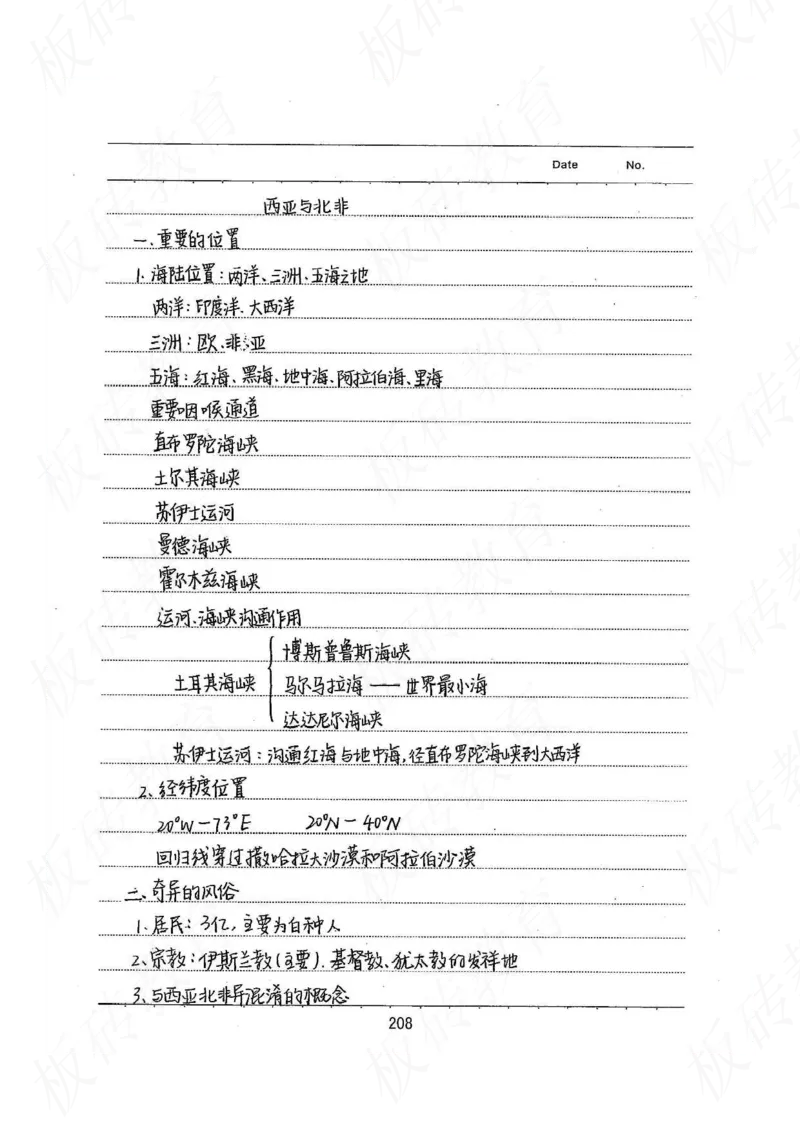 Date No.
西亚与北非
一、重要的位置
1. 海陆位置：两洋、三洲、五海之地
两洋：印度洋、大西洋
三洲：欧、非、亚
五海：红海、黑海、地中海、阿拉伯海、里海
重要咽喉通道
直布罗陀海峡
土尔其海峡
苏伊士运河
曼德海峡
霍尔木兹海峡
运河、海峡沟通作用
博斯普鲁斯海峡
土耳其海峡 马尔马拉海——世界最小海
达达尼尔海峡
苏伊士运河：沟通红海与地中海，径直布罗陀海峡到大西洋
2、经纬度位置
20°W－73°E 20°N－40°N
回归线穿过撒哈拉大沙漠和阿拉伯沙漠
二、奇异的风俗
1. 居民：3亿，主要为白种人
2、宗教：伊斯兰教（主要）．基督教、犹太教的发祥地
3、与西亚北非易混淆的概念
208
板砖教育